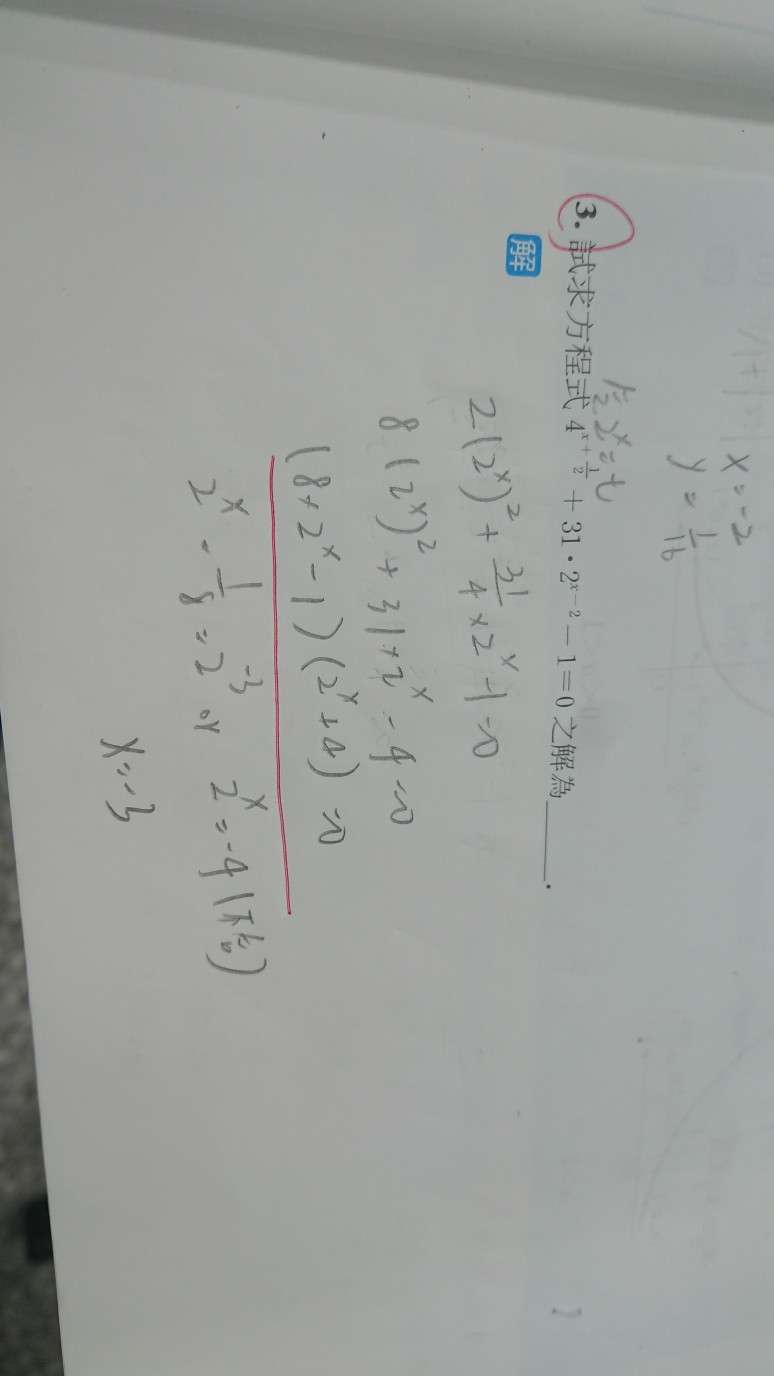 x = -2
y = 1/16
令 2^x = t
3. 試求方程式 4^{x+1/2} + 31 · 2^{x-2} - 1 = 0 之解為______.
解
2(2^x)^2 + 31/4 × 2^x - 1 = 0
8(2^x)^2 + 31 × 2^x - 4 = 0
(8 × 2^x - 1)(2^x + 4) = 0
2^x = 1/8 = 2^{-3} or 2^x = -4 (不合)
x = -3